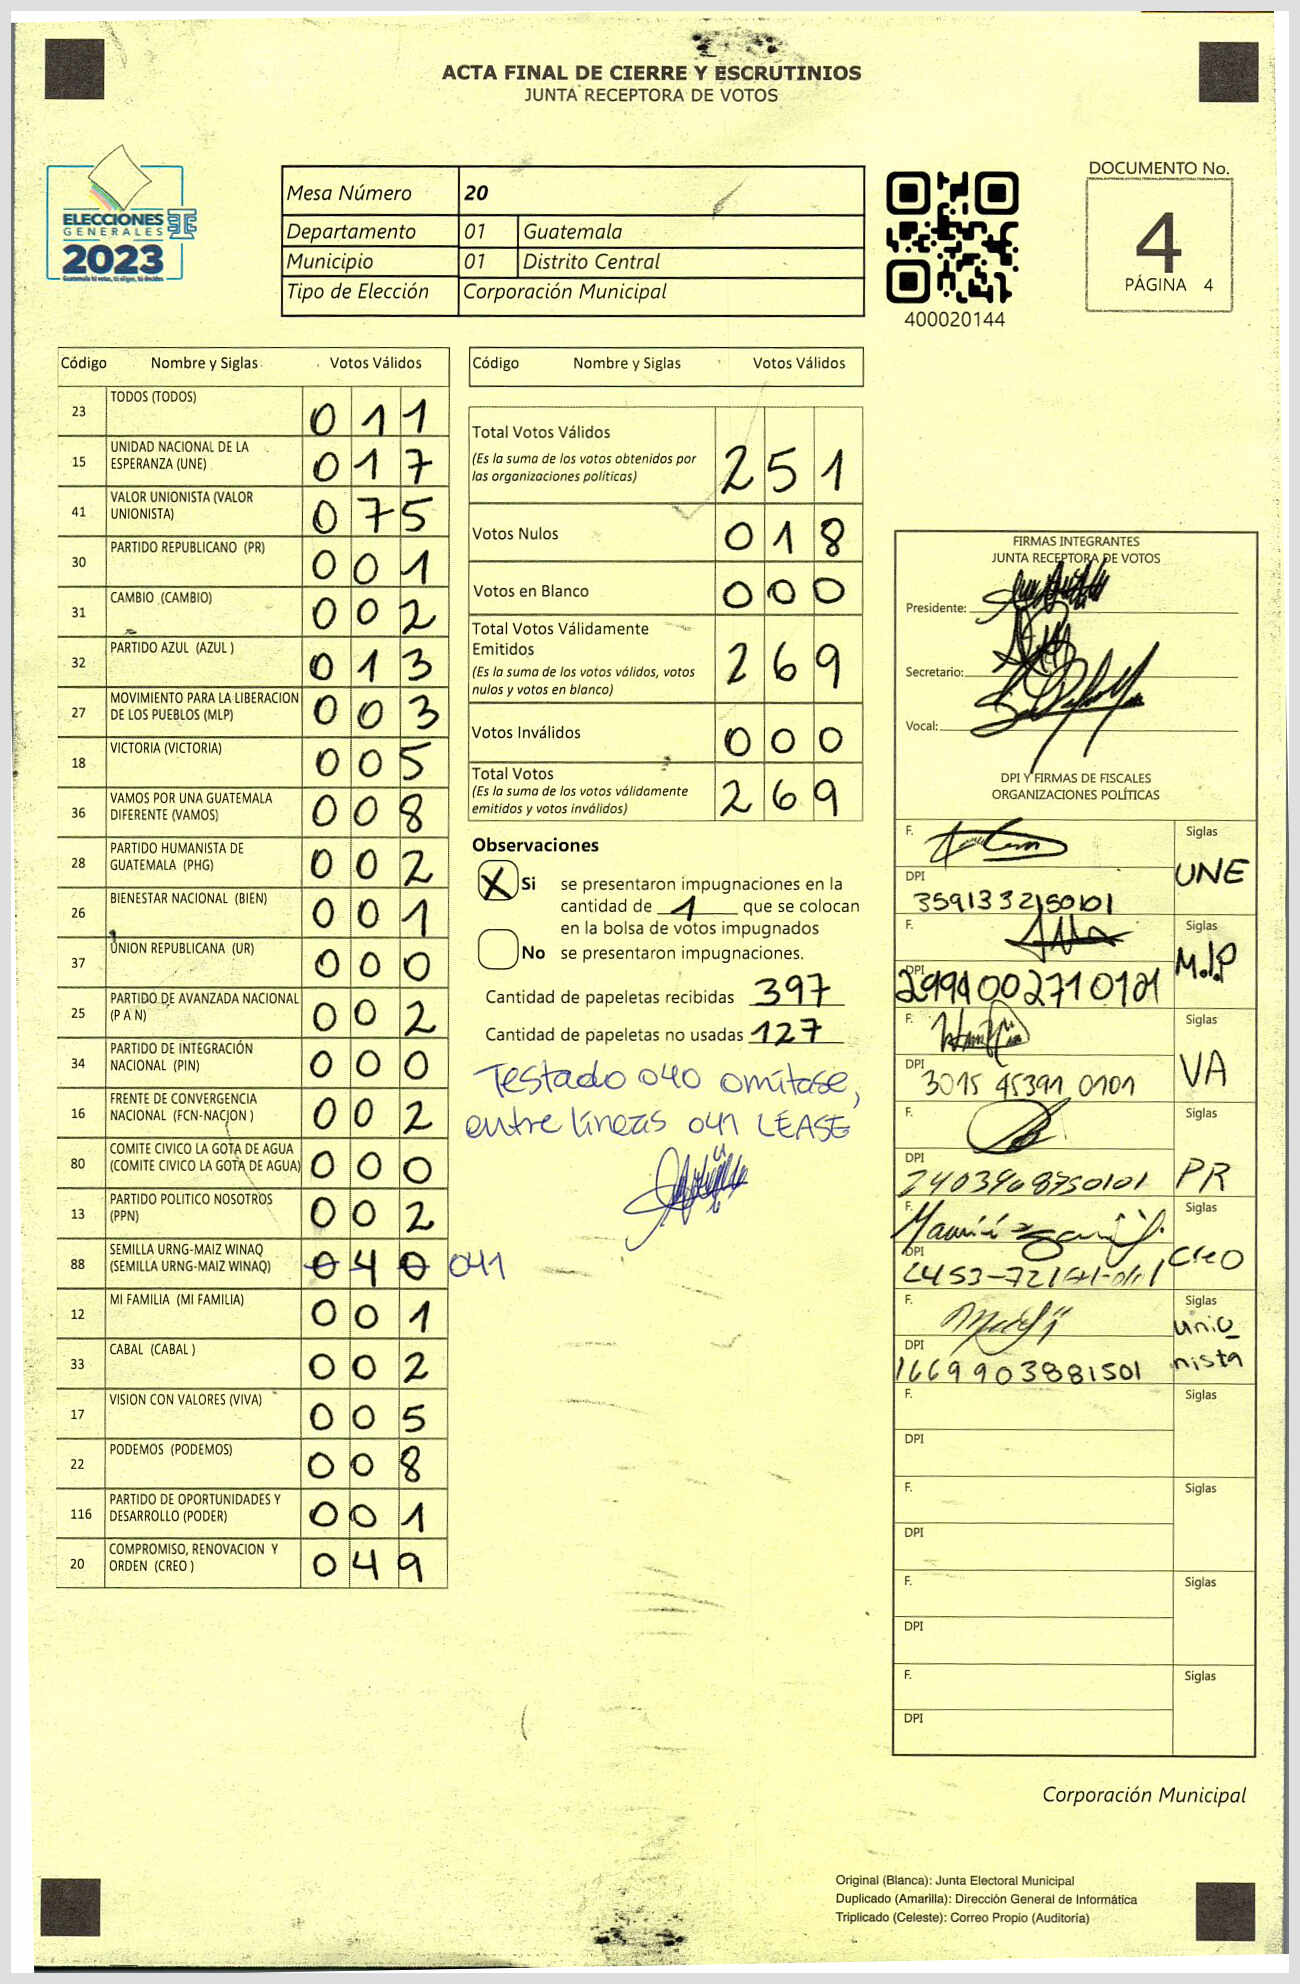 ACTA FINAL DE CIERRE Y ESCRUTINIOS
JUNTA RECEPTORA DE VOTOS
ELECCIONES
GENERALES
2023
Mesa Número 20
Departamento 01 Guatemala
Municipio 01 Distrito Central
Tipo de Elección Corporación Municipal
400020144
DOCUMENTO No.
4
PÁGINA 4
Código Nombre y Siglas Votos Válidos
23 TODOS (TODOS) 011
15 UNIDAD NACIONAL DE LA
ESPERANZA (UNE) 017
41 VALOR UNIONISTA (VALOR
UNIONISTA) 075
30 PARTIDO REPUBLICANO (PR) 001
31 CAMBIO (CAMBIO) 002
32 PARTIDO AZUL (AZUL ) 013
27 MOVIMIENTO PARA LA LIBERACION
DE LOS PUEBLOS (MLP) 003
18 VICTORIA (VICTORIA) 005
36 VAMOS POR UNA GUATEMALA
DIFERENTE (VAMOS) 008
28 PARTIDO HUMANISTA DE
GUATEMALA (PHG) 002
26 BIENESTAR NACIONAL (BIEN) 001
37 UNION REPUBLICANA (UR) 000
25 PARTIDO DE AVANZADA NACIONAL
(P A N) 002
34 PARTIDO DE INTEGRACIÓN
NACIONAL (PIN) 000
16 FRENTE DE CONVERGENCIA
NACIONAL (FCN-NACION ) 002
80 COMITE CIVICO LA GOTA DE AGUA
(COMITE CIVICO LA GOTA DE AGUA) 000
13 PARTIDO POLITICO NOSOTROS
(PPN) 002
88 SEMILLA URNG-MAIZ WINAQ
(SEMILLA URNG-MAIZ WINAQ) 040 041
12 MI FAMILIA (MI FAMILIA) 001
33 CABAL (CABAL ) 002
17 VISION CON VALORES (VIVA) 005
22 PODEMOS (PODEMOS) 008
116 PARTIDO DE OPORTUNIDADES Y
DESARROLLO (PODER) 001
20 COMPROMISO, RENOVACION Y
ORDEN (CREO ) 049
Código Nombre y Siglas Votos Válidos
Total Votos Válidos
(Es la suma de los votos obtenidos por
las organizaciones políticas) 251
Votos Nulos 018
Votos en Blanco 000
Total Votos Válidamente
Emitidos
(Es la suma de los votos válidos, votos
nulos y votos en blanco) 269
Votos Inválidos 000
Total Votos
(Es la suma de los votos válidamente
emitidos y votos inválidos) 269
Observaciones
X Si se presentaron impugnaciones en la
cantidad de 1 que se colocan
en la bolsa de votos impugnados
No se presentaron impugnaciones.
Cantidad de papeletas recibidas 397
Cantidad de papeletas no usadas 127
Testado 040 omitase,
entre líneas 041 LEASE
FIRMAS INTEGRANTES
JUNTA RECEPTORA DE VOTOS
Presidente:
Secretario:
Vocal:
DPI Y FIRMAS DE FISCALES
ORGANIZACIONES POLÍTICAS
F. Siglas
UNE
DPI
3591332150101
F. Siglas
M.l.P
DPI
2994002710101
F. Siglas
VA
DPI
3015 45391 0101
F. Siglas
PR
DPI
2403968750101
F. Siglas
Creo
DPI
F. Siglas
unio
nista
DPI
1669903881501
F. Siglas
DPI
F. Siglas
DPI
F. Siglas
DPI
F. Siglas
DPI
Corporación Municipal
Original (Blanca): Junta Electoral Municipal
Duplicado (Amarilla): Dirección General de Informática
Triplicado (Celeste): Correo Propio (Auditoría)